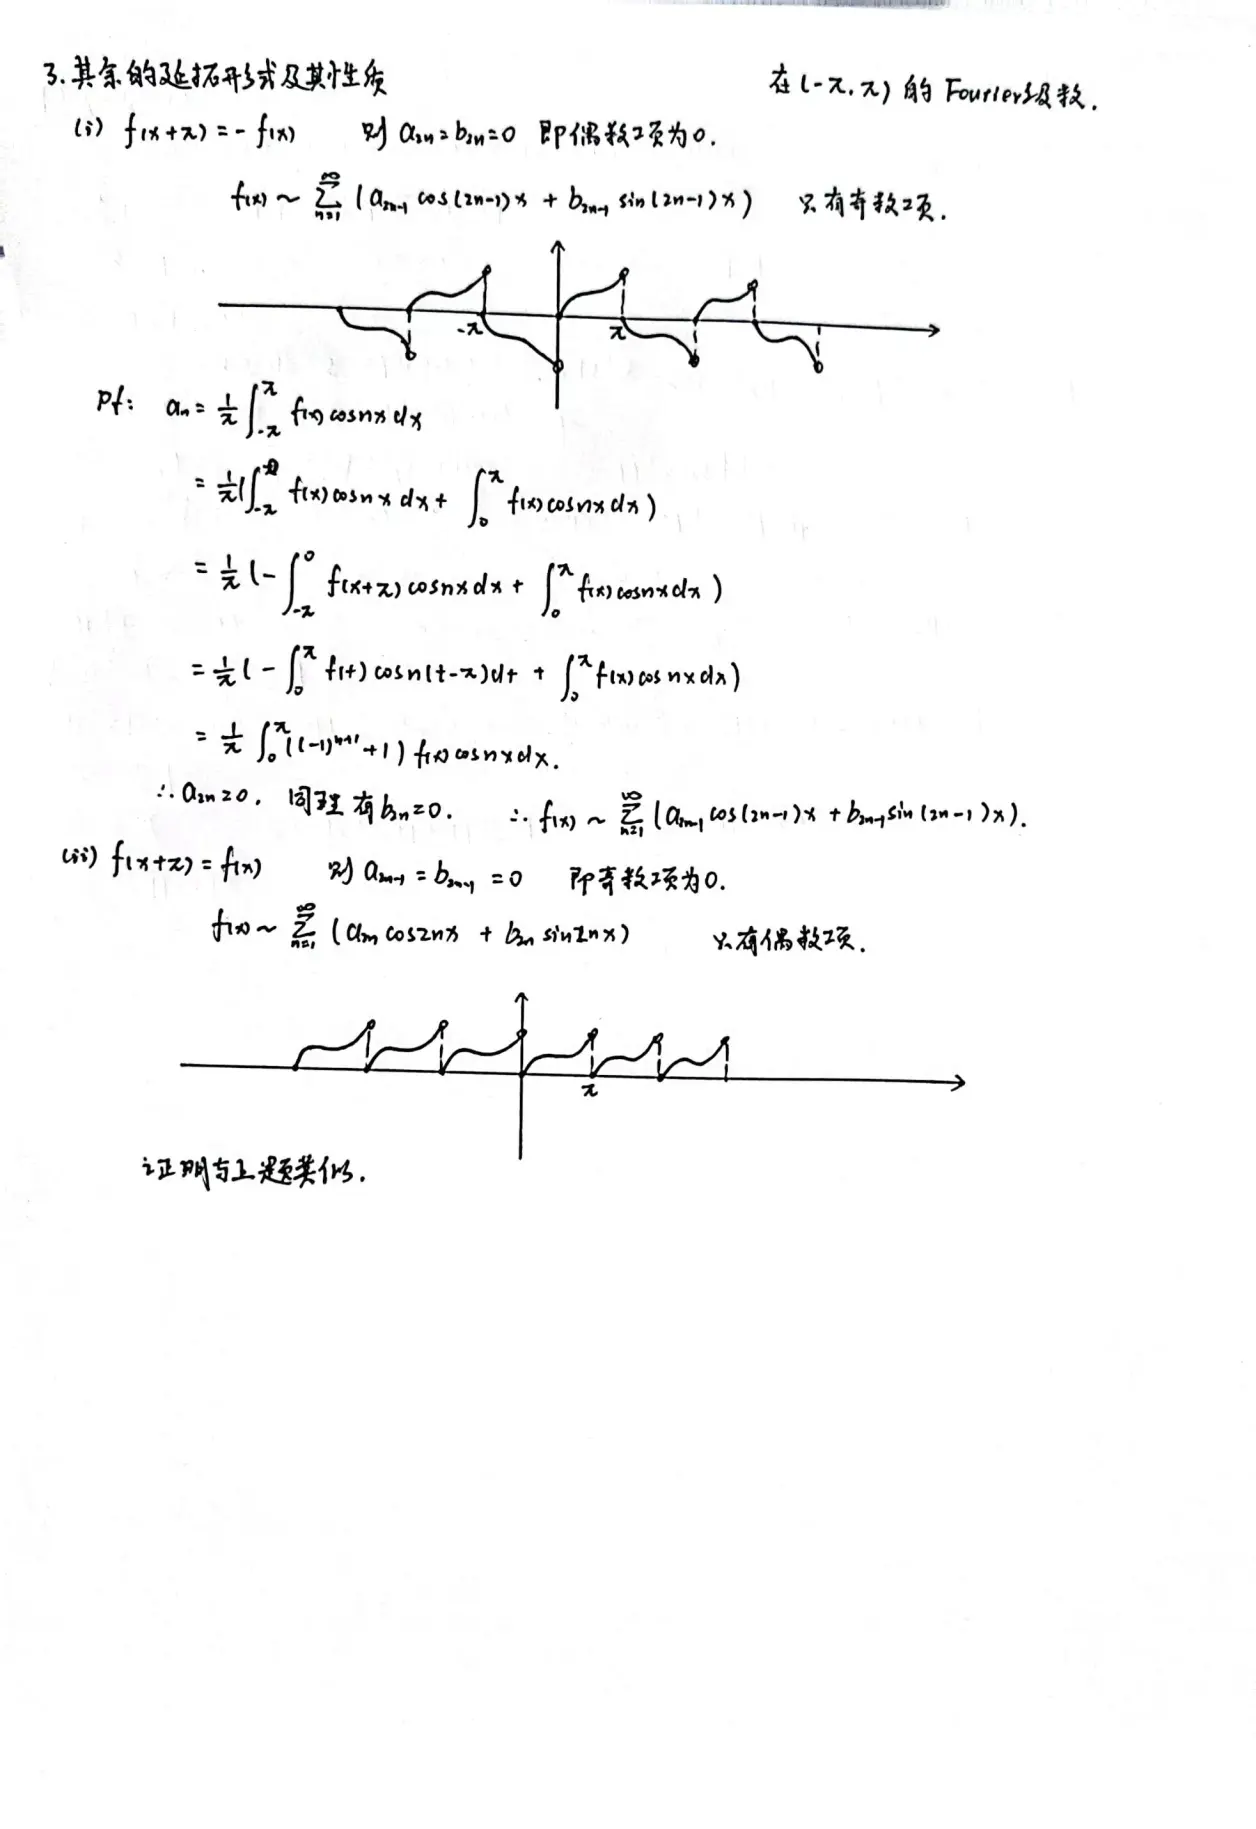 3.其余的延拓形式及其性质 在(-π,π)的Fourier级数.
(i) f(x+π)=-f(x) 则 a₂ₙ=b₂ₙ=0 即偶数项为0.
f(x)~∑_{n=1}^{∞}(a₂ₙ₋₁cos(2n-1)x+b₂ₙ₋₁sin(2n-1)x) 只有奇数项.
-π π
Pf: aₙ=1/π∫_{-π}^{π}f(x)cosnxdx
=1/π(∫_{-π}^{0}f(x)cosnxdx+∫_{0}^{π}f(x)cosnxdx)
=1/π(-∫_{-π}^{0}f(x+π)cosnxdx+∫_{0}^{π}f(x)cosnxdx)
=1/π(-∫_{0}^{π}f(t)cosn(t-π)dt+∫_{0}^{π}f(x)cosnxdx)
=1/π∫_{0}^{π}((-1)ⁿ⁺¹+1)f(x)cosnxdx.
∴a₂ₙ=0, 同理有b₂ₙ=0. ∴f(x)~∑_{n=1}^{∞}(a₂ₙ₋₁cos(2n-1)x+b₂ₙ₋₁sin(2n-1)x).
(ii) f(x+π)=f(x) 则 a₂ₙ₋₁=b₂ₙ₋₁=0 即奇数项为0.
f(x)~∑_{n=1}^{∞}(a₂ₙcos2nx+b₂ₙsin2nx) 只有偶数项.
π
证明与上题类似.